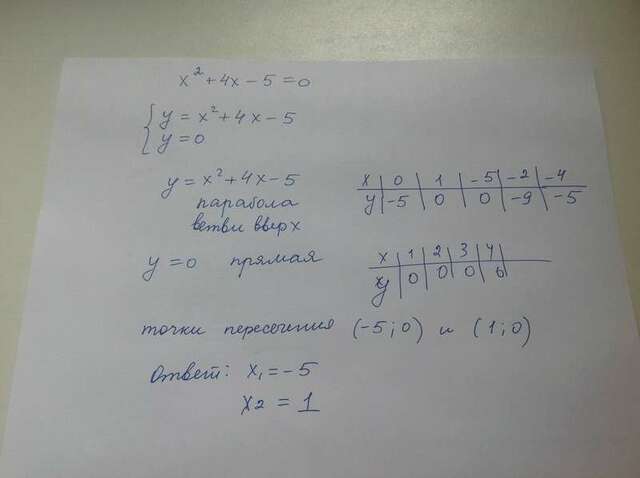 x² + 4x - 5 = 0
{ y = x² + 4x - 5
y = 0
y = x² + 4x - 5
парабола
ветви вверх
x | 0 | 1 | -5 | -2 | -4
y | -5 | 0 | 0 | -9 | -5
y = 0 прямая
x | 1 | 2 | 3 | 4
y | 0 | 0 | 0 | 0
точки пересечения (-5; 0) и (1; 0)
Ответ: x₁ = -5
x2 = 1